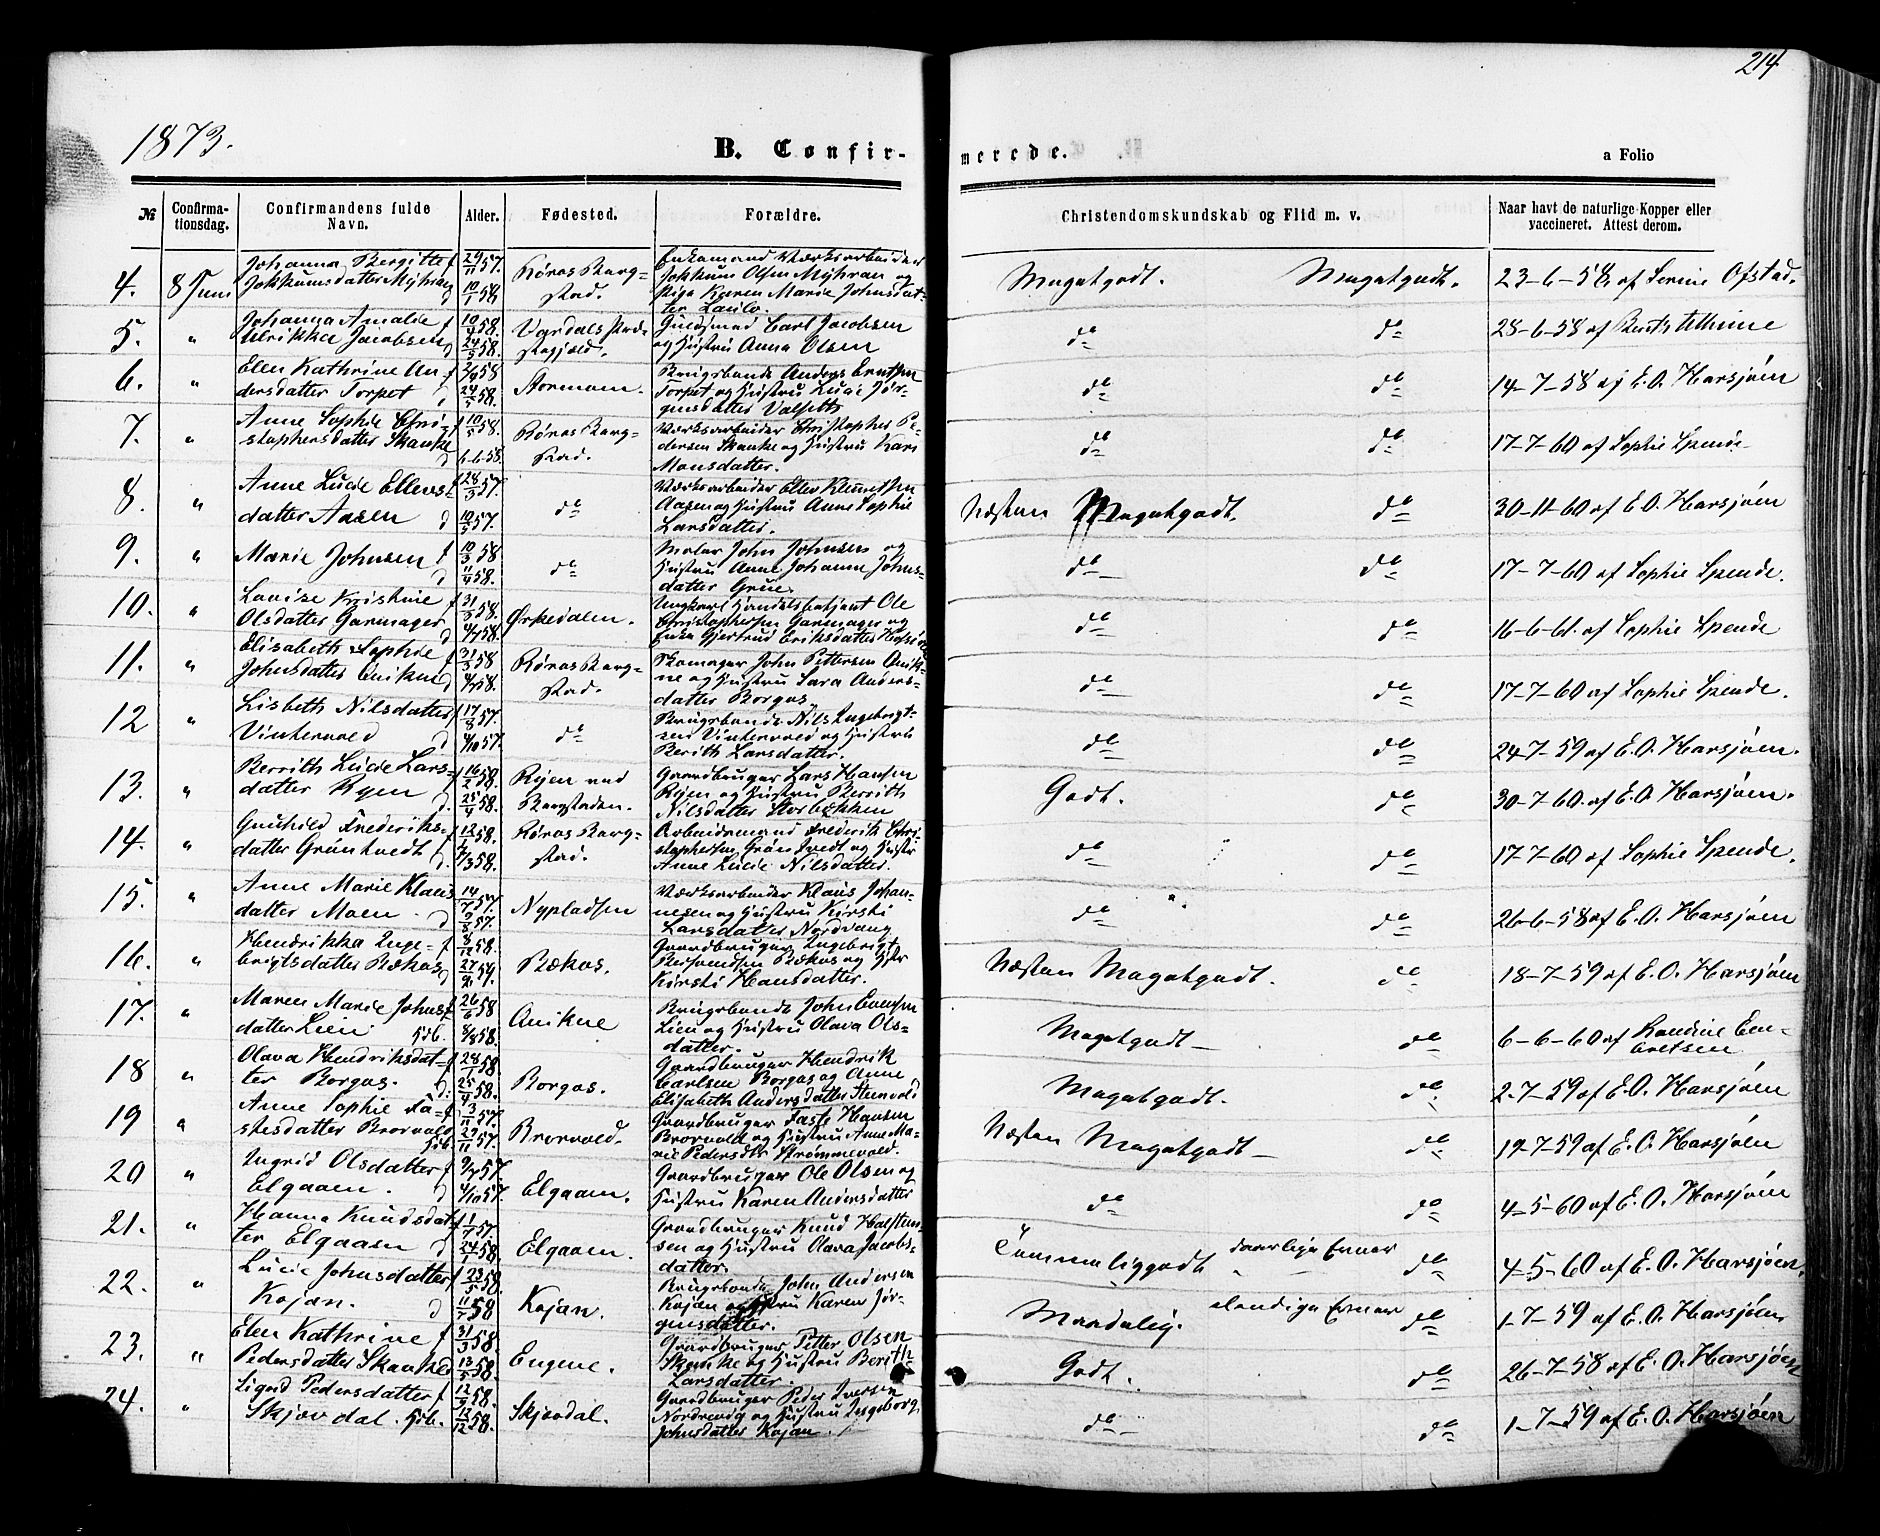 214
1873.
B. Confir-
merede.
a Folio
№
Confirma-
tionsdag.
Confirmandens fulde
Navn.
Alder.
Fødested.
Forældre.
Christendomskundskab og Flid m. v.
Naar havt de naturlige Kopper eller
vaccineret. Attest derom.
4. 8 Juni
Johanna Bergitte f
Jokkumsdatter Myhran d
29/11 57.
10/1 58
Røros Berg-
stad.
Enkemand Værksarbeider
Jokkum Olsen Myhran og
Pige Karen Marie Johnsdat-
ter Laulo.
Megetgodt. Megetgodt.
23-6-58 af Serine Ofstad.
5. "
Johanna Amalie f
Ulrikke Jacobsen d
10/4 58.
24/5 58.
Værdals Præ-
stegjæld.
Guldsmed Carl Jacobsen
og Hustru Anna Olsen
do do
28-6-58 af
6. "
Elen Kathrine An- f
dersdatter Torpet d
24/5 58.
Brugsbonde Anders Erntsen
Torpet og Hustru Lucie Jør-
gensdatter Valsett
do do
14-7-58 af E. O. Harsjøen
7. "
Anne Sophie Chri- f
stophersdatter Skanke d
10/5 58.
6-6-58.
Røros Berg-
stad.
Værksarbeider Christopher Pe-
dersen Skanke og Hustru Kari
Monsdatter.
do do
17-7-60 af Sophie Spende.
8. "
Anne Lucie Ellevs- f
datter Aasen d
28/3 57.
10/5 57.
do
Værksarbeider Ellev Klemetsen
Aasen og Hustru Anne Sophie
Larsdatter.
Næsten Megetgodt. do
30-11-60 af E. O. Harsjøen
9. "
Marie Johnsen f
d
10/3 58.
11/4 58.
do
Maler John Johnsen og
Hustru Anne Johanna Johns-
datter Grue.
do do
17-7-60 af Sophie Spende.
10. "
Lovise Kristine f
Olsdatter Garmager d
31/3 58.
4/7 58.
Ørkedalen.
Ungkarl Handelsbetjent Ole
Christophersen Garmager og
Enke Gjertrud Eriksdatter
do do
16-6-61. af Sophie Spende
11. "
Elisabeth Sophie f
Johnsdatter Aukne d
31/3 58
4/7 58.
Røros Berg-
stad.
Skomager John Pettersen Auk-
ne og Hustru Sara Anders-
datter Borgas,
do do
17-7-60 af Sophie Spende.
12 "
Lisbeth Nilsdatter f
Vintervold d
17/8 57.
4/10 57.
do
Brugsbonde Nils Ingebrigt-
sen Vintervold og Hustru
Berith Larsdatter.
do do
24-7-59 af E. O. Harsjøen.
13. "
Berrith Lucie Lars- f
datter Ryen d.
16/2 58.
25/4 58.
Ryen ved
Bergstaden.
Gaardbruger Lars Hansen
Ryen og Hustru Berrith
Nilsdatter Storbækken
Godt. do
30-7-60. af E. O. Harsjøen.
14. "
Gunhild Frederiks- f
datter Grøntvedt d.
12/1 58.
7/3 58.
Røros Berg-
stad.
Arbeidsmand Frederik Chri-
stophersen Grøntvedt og Hustr
Anne Lucie Nilsdatter.
do do
17-7-60 af Sophie Spende.
15. "
Anne Marie Klaus f
datter Moen. d
14/7 57.
9/8 57.
Nypladsen
Værksarbeider Klaus Johan-
nesen og Hustru Kirsti
Larsdatter Nordvang
do do
26-6-58 af E. O. Harsjøen
16. "
Hendrikka Inge- f
brigtsdatter Bækos d
Bækos.
Gaardbruger Ingebrigt
Bersvendsen Bækos og Hstr
Kirsti Hansdatter.
Næsten Megetgodt. do
18-7-59 af E. O. Harsjøen
17. "
Maren Marie Johns f
datter Lien. Hjb.
26/6 58
8/8 58.
Aukne
Brugsbonde John Evensen
Lien og Hustru Olava Ols-
datter.
Megetgodt do
6-6-60 af Randine Em-
bretsen
18 "
Olava Hendriksdat- f
ter Borgos. d.
28/1 58.
25/4 58.
Borgos.
Gaardbruger Hendrik
Carlsen Borgos og Anne
Elisabeth Andersdatter Stenvold
Megetgodt. do
2-7-59 af E. O. Harsjøen
19 "
Anne Sophie Fa- f
stesdatter Brorvold Hjb.
3/11 57.
29/11 57.
Brorvold.
Gaardbruger Faste Hansen
Brorvold og Hustru Anne Ma-
rie Pedersdtr Strømmevold.
Næsten Megetgodt do
19-7-59 af E. O. Harsjøen
20 "
Ingrid Olsdatter f
Elgaaen. d
9/7 57.
4/10 57.
Elgaaen.
Gaardbruger Ole Olsen og
Hustru Karen Andersdatter
do do
4-5-60 af E. O. Harsjøen
21. "
Hanna Knudsdat f
ter Elgaaen d
24/1 58.
Elgaaen.
Gaardbruger Knud Halsten-
sen og Hustru Olava Jacobs-
datter.
Temmeliggodt daarlige Evner do
4-5-60 af E. O. Harsjøen.
22. "
Lucie Johnsdatter f
Kojan. d
23/5 58.
11/7 58
Kojan.
Brugsbonde John Andersen
Kojan og Hustru Karen Jør-
gensdatter.
Maadelig. elendige Evner do
1-7-59 af E. O. Harsjøen
23. "
Elen Kathrine f
Pedersdatter Skanke d
31/3 58.
13/5 58.
Engene.
Gaardbruger Petter Olsen
Skanke og Hustru Berith
Larsdatter.
Godt. do
26-7-58 af E. O. Harsjøen
24. "
Sigrid Pedersdatter f
Skjevdal. Hjb.
12/12 58.
Skjevdal.
Gaardbruger Peder Iversen
Nordrevig og Hustru Ingeborg
Johnsdatter Kojan.
do do
1-7-59 af E. O. Harsjøen